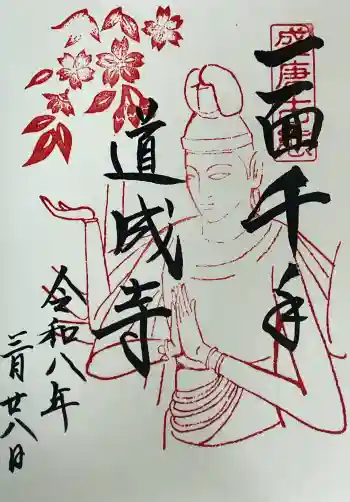 二面千手
道成寺
令和八年
三月廿八日